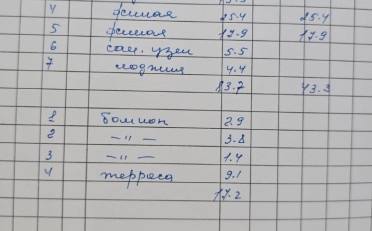 4 жилая 25.4 25.4
5 жилая 17.9 17.9
6 сан. узел 5.5
7 лоджия 4.4
83.7 43.3
1 балкон 2.9
2 —"— 3.8
3 —"— 1.4
4 терраса 9.1
17.2